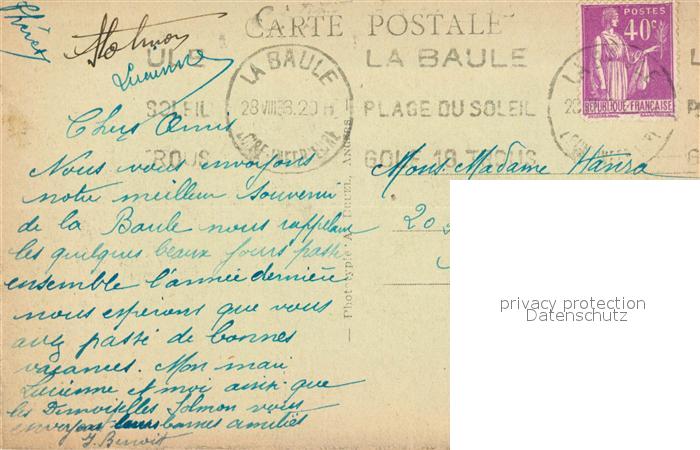 CARTE POSTALE
POSTES
40c
REPUBLIQUE FRANÇAISE
LA BAULE
PLAGE DU SOLEIL
GOLF 18 TROUS
LA BAULE
28 VIII 38. 20 H
LOIRE INFERIEURE
ULE
SOLEIL
ROUS
Lucienne
Chers Amis
Nous vous envoyons
notre meilleur souvenir
de la Baule nous rappelant
les quelques beaux jours passé
ensemble l'année dernière
nous esperons que vous
avez passé de bonnes
vacances. Mon mari
Lucienne et moi ainsi que
les Demoiselles Solmon vous
envoyons leurs bonnes amitiés
J. Benoit
Mons. Madame
20
Phototypie A. BRUEL, ANGERS
privacy protection
Datenschutz